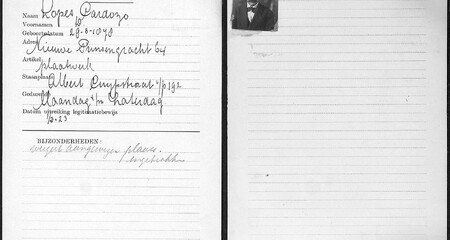 Naam Lopes Cardozo
Voornamen
Geboortedatum 29-6-1879
Adres Nieuwe Prinsengracht 64
Artikel plaatwerk
Staanplaats Albert Cuypstraat t/o 192
Gedurende Maandag t/m Zaterdag.
Datum uitreiking legitimatiebewijs
1/6-23
BIJZONDERHEDEN:
weigert aangewezen plaats.
ingetrokken